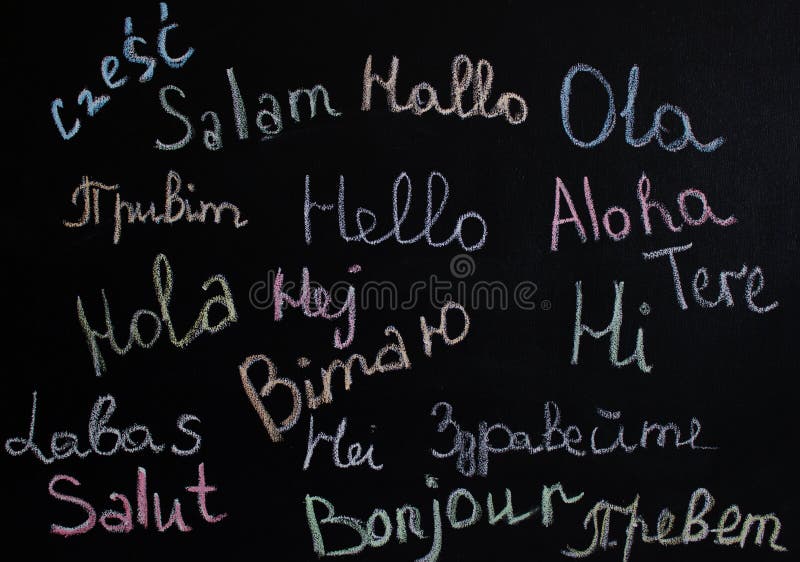 Cześć
Salam Hallo Ola
Привіт Hello Aloha
Hola Hej Hi Tere
Вітаю
Labas Hei Здравейте
Salut Bonjour Превет
dreamstime